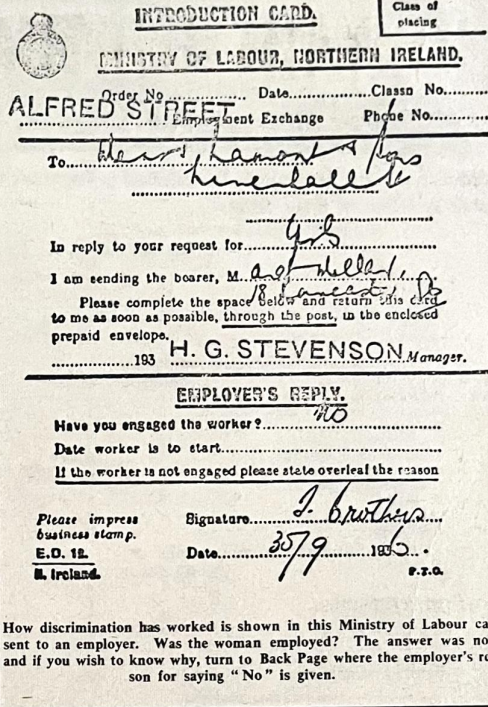 INTRODUCTION CARD.
Class of
placing
MINISTRY OF LABOUR, NORTHERN IRELAND.
Order No. Date Classn No.
ALFRED STREET
Employment Exchange Phone No.
To Messrs Lamont & Sons
In reply to your request for Girl
I am sending the bearer, M
18
Please complete the space below and return this card
to me as soon as possible, through the post, in the enclosed
prepaid envelope.
193 H. G. STEVENSON Manager.
EMPLOYER'S REPLY.
Have you engaged the worker? NO
Date worker is to start
If the worker is not engaged please state overleaf the reason
Please impress
business stamp.
Signature J. Brothers
E.D. 12.
N. Ireland.
Date 30/9 1936.
P.T.O.
How discrimination has worked is shown in this Ministry of Labour ca
sent to an employer. Was the woman employed? The answer was no
and if you wish to know why, turn to Back Page where the employer's re
son for saying "No" is given.